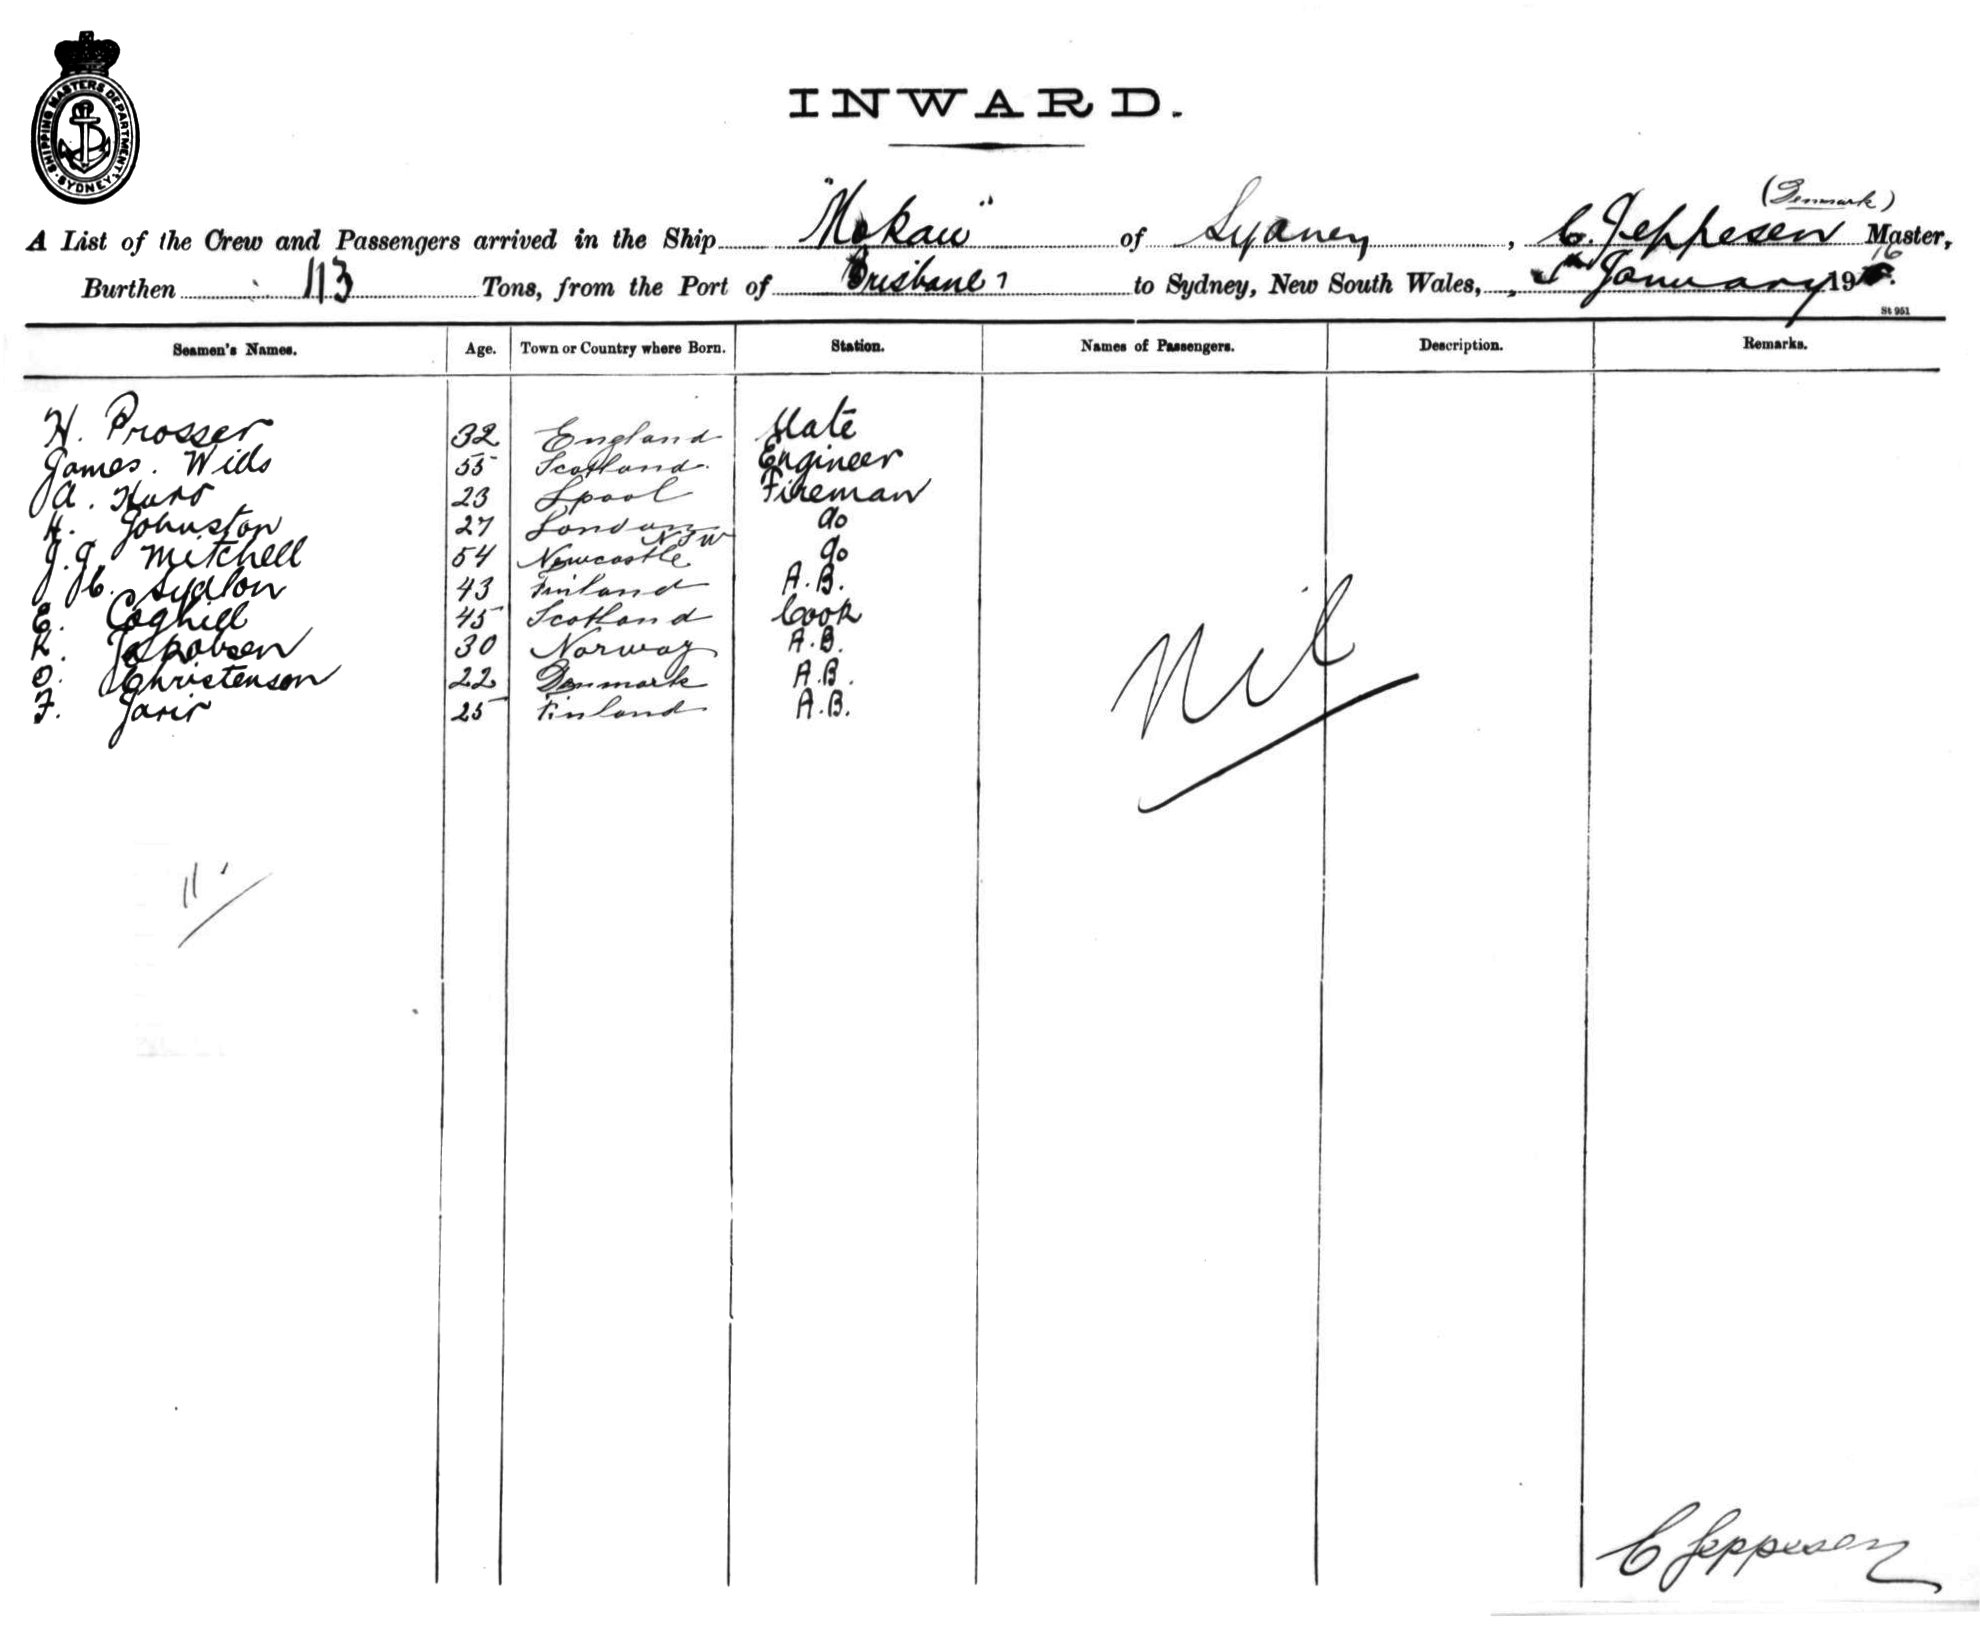 SHIPPING MASTERS DEPARTMENT SYDNEY
INWARD.
(Denmark)
A List of the Crew and Passengers arrived in the Ship "Mokau" of Sydney, C. Jeppesen Master,
Burthen 113 Tons, from the Port of Brisbane to Sydney, New South Wales, January 1916
St 951
Seamen's Names. Age. Town or Country where Born. Station. Names of Passengers. Description. Remarks.
H. Prosser 32 England Mate
James. Wills 55 Scotland. Engineer
A. 23 Lpool Fireman
H. Johnston 27 London do
J. J. Mitchell 54 Newcastle NSW do
43 Finland A.B.
E. Coghill 45 Scotland Cook
K. Jakobsen 30 Norway A.B.
O. Christensen 22 Denmark A.B.
F. 25 Finland A.B.
Nil
11.
C Jeppesen